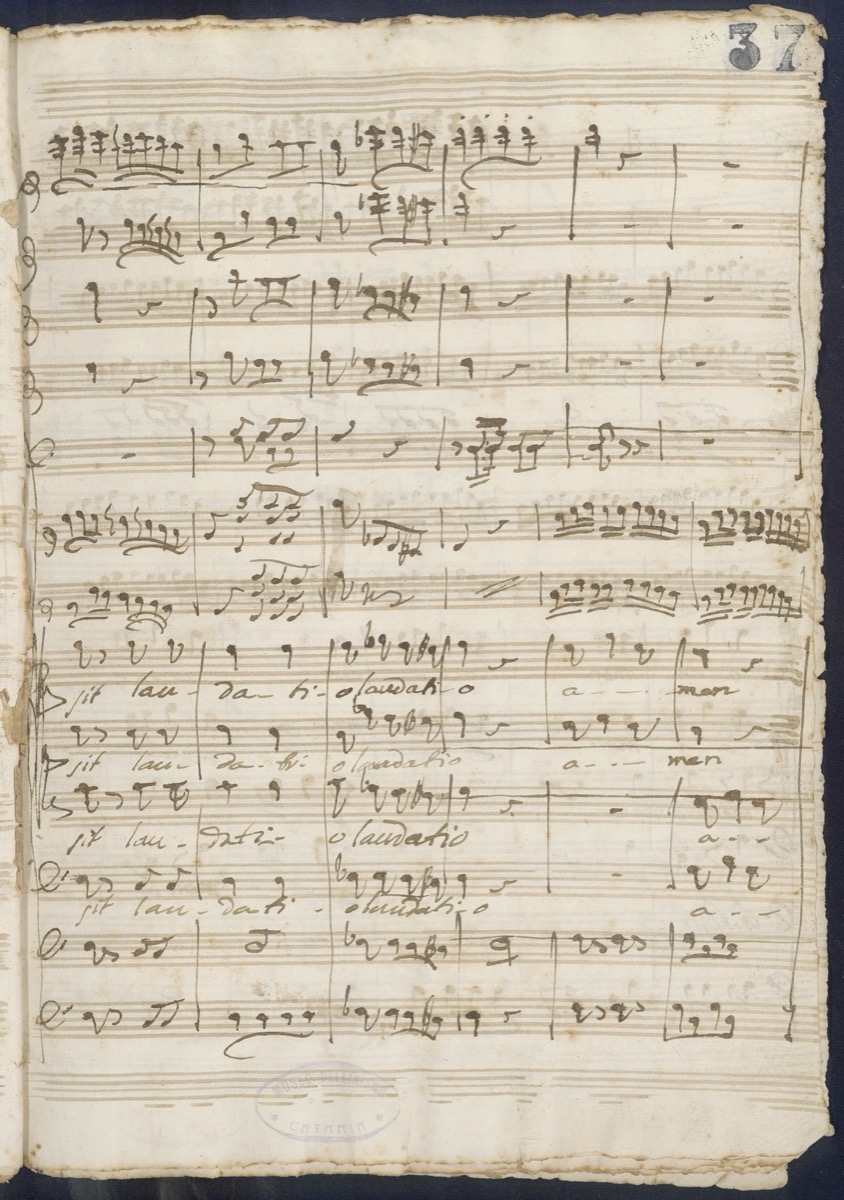 37
sit lau- da- ti- o laudati- o a- - - - men
sit lau- da- ti- o laudatio a- - - men
sit lau- dati- o laudatio a- -
sit lau- da- ti- o laudati- o a- - -
MUSEO BELLINIANO
CATANIA